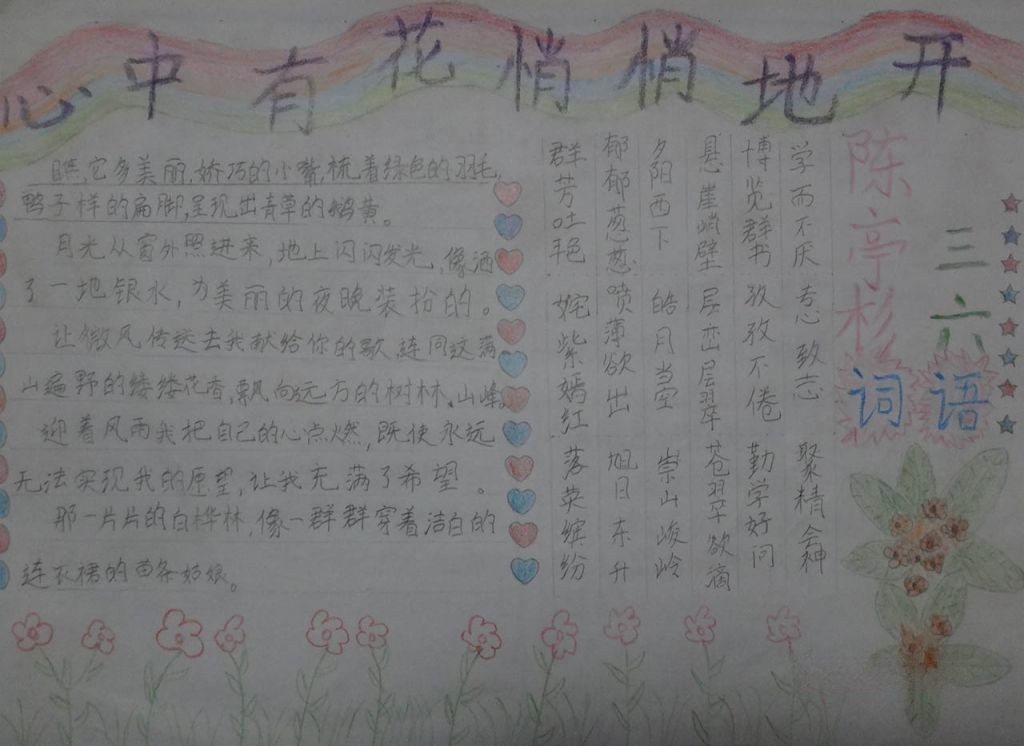 心中有花悄悄地开
瞧,它多美丽,娇巧的小嘴,梳着绿色的羽毛,
鸭子样的扁脚,呈现出青草的鹅黄。
月光从窗外照进来,地上闪闪发光,像洒
了一地银水,为美丽的夜晚装扮的。
让微风传送去我献给你的歌,连同这满
山遍野的缕缕花香,飘向远方的树林、山峰。
迎着风雨我把自己的心点燃,既使永远
无法实现我的愿望,让我充满了希望。
那一片片的白桦林,像一群群穿着洁白的
连衣裙的苗条姑娘。
三六
词语
陈亭杉
学而不厌 专心致志 聚精会神
博览群书 孜孜不倦 勤学好问
悬崖峭壁 层峦层翠 苍翠欲滴
夕阳西下 皓月当空 崇山峻岭
郁郁葱葱 喷薄欲出 旭日东升
群芳吐艳 姹紫嫣红 落英缤纷